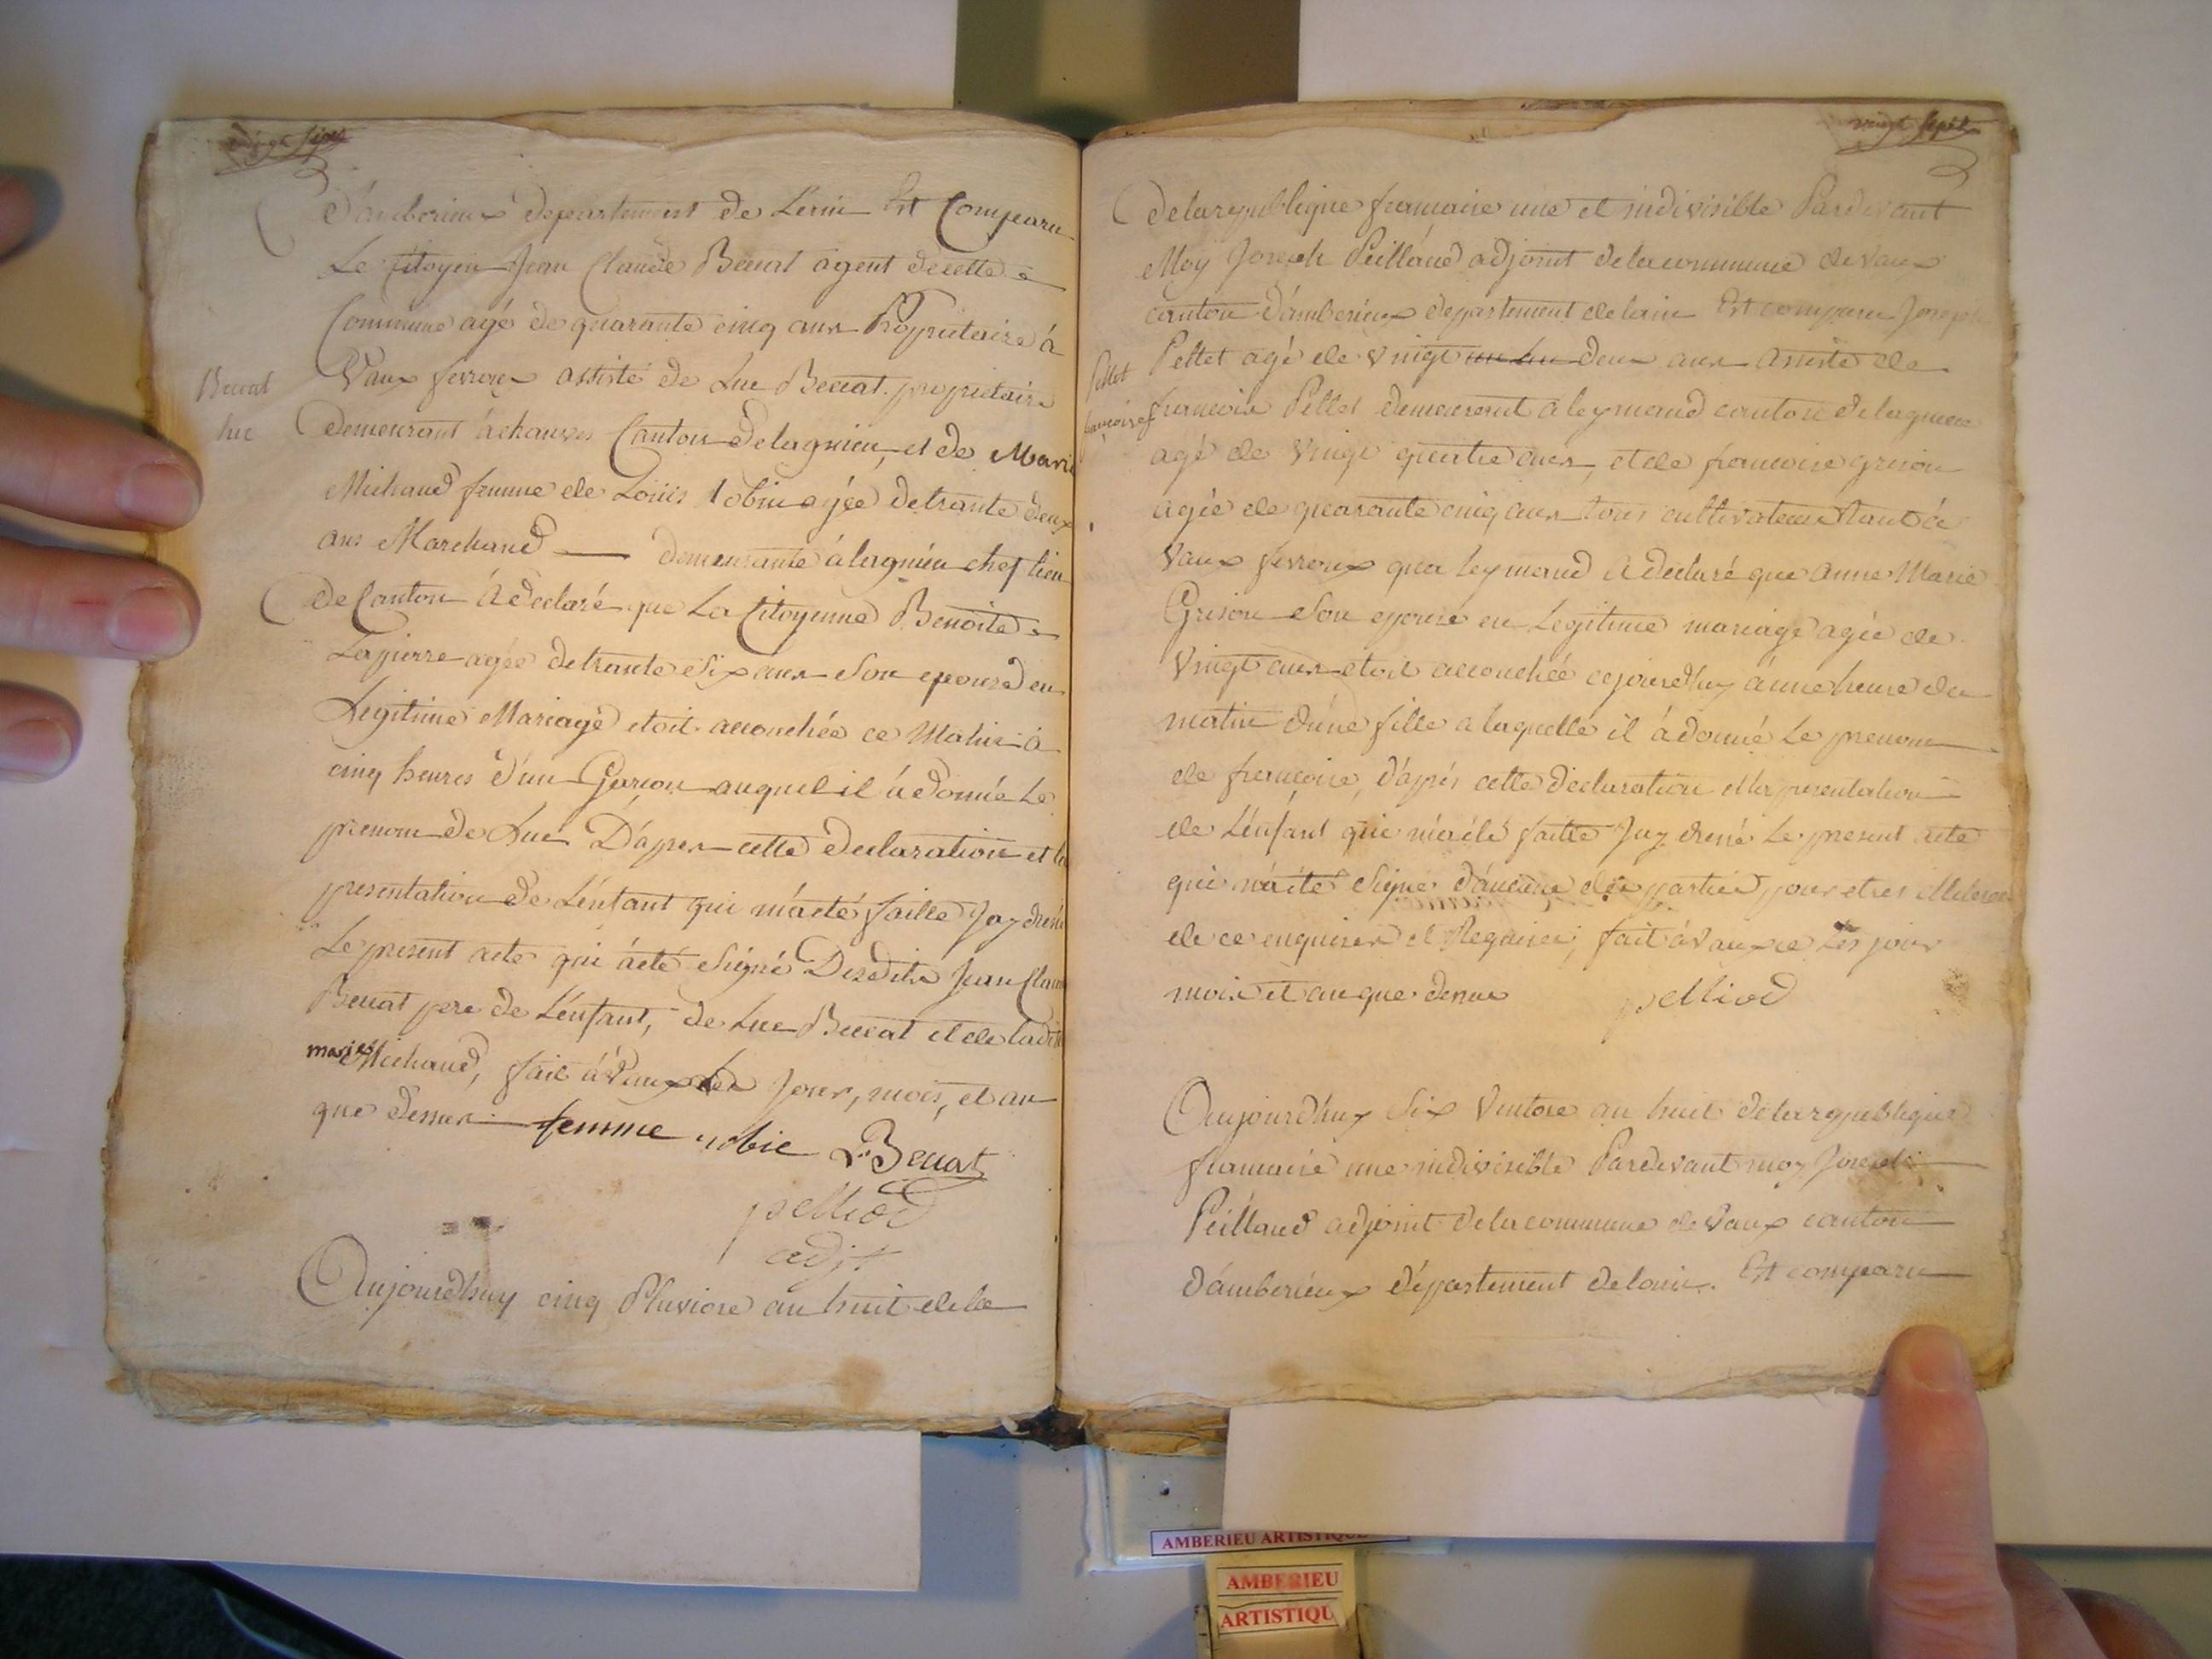 vingt sept
d'amberieux departement de L'ain Est Comparu
Le Citoyen Jean Claude Beccat agent de cette
Commune agé de quarante cinq ans Propriétaire á
Vaux fevroux assisté de Luc Beccat propriétaire
Beccat
Luc
demeurant á chauves Canton de lagnieu, et de Marie
Michaud femme de Loüis tobie agée de trante deux
ans Marchand — demeurante á lagnieu chef lieu
de Canton á déclaré que La Citoyenne Benoite
Lapierre agée de trante Six ans Son epouse en
Legitime Mariage etoit accouchée ce Matin á
cinq heures d'un Garçon auquel il á donné Le
prenom de Luc D'apres cette declaration et la
presentation de L'enfant qui m'a eté faitte Jay dressé
Le present acte qui á eté Signé Desdits Jean Claude
Beccat pere de L'enfant, de Luc Beccat et de ladite
marie Michaud, fait á Vaux Les Jour, mois, et an
que dessus femme tobie L. Beccat
pelliod
adjt
Aujourdhuy cinq Pluviose an huit de la
vingt sept
de la republique francaise une et indivisible Pardevant
Moy Joseph Peillaud adjoint de la commune de Vaux
canton d'amberieux departement de lain Est comparu Joseph
Pellet agé de vingt deux ans assisté de
Pellet
francoise
francois Pellet demeurant a leymend canton de lagnieu
agé de vingt quatre ans, et de francoise grison
agée de quarante cinq ans tous cultivateurs tant á
Vaux fevroux qua leymend A declaré que Anne Marie
Grison Son epouse en Legitime mariage agée de
Vingt ans etoit accouchée cejourdhuy á une heure du
matin dune fille a laquelle il á donné Le prenom
de francoise, d'aprés cette declaration et la presentation
de L'enfant qui m'a eté faitte Jay dressé Le present acte
qui n'a eté Signé d'aucune des parties, pour etres illiteres
de ce enquises et Requises, fait á Vaux ce Les jour
mois et an que dessus pelliod
Aujourdhuy Six Ventose an huit de la republique
francaise une indivisible Pardevant moy Joseph
Peillaud adjoint de la commune de Vaux canton
d'amberieux département de lain. Est comparu
AMBERIEU ARTISTIQUE
AMBERIEU
ARTISTIQU